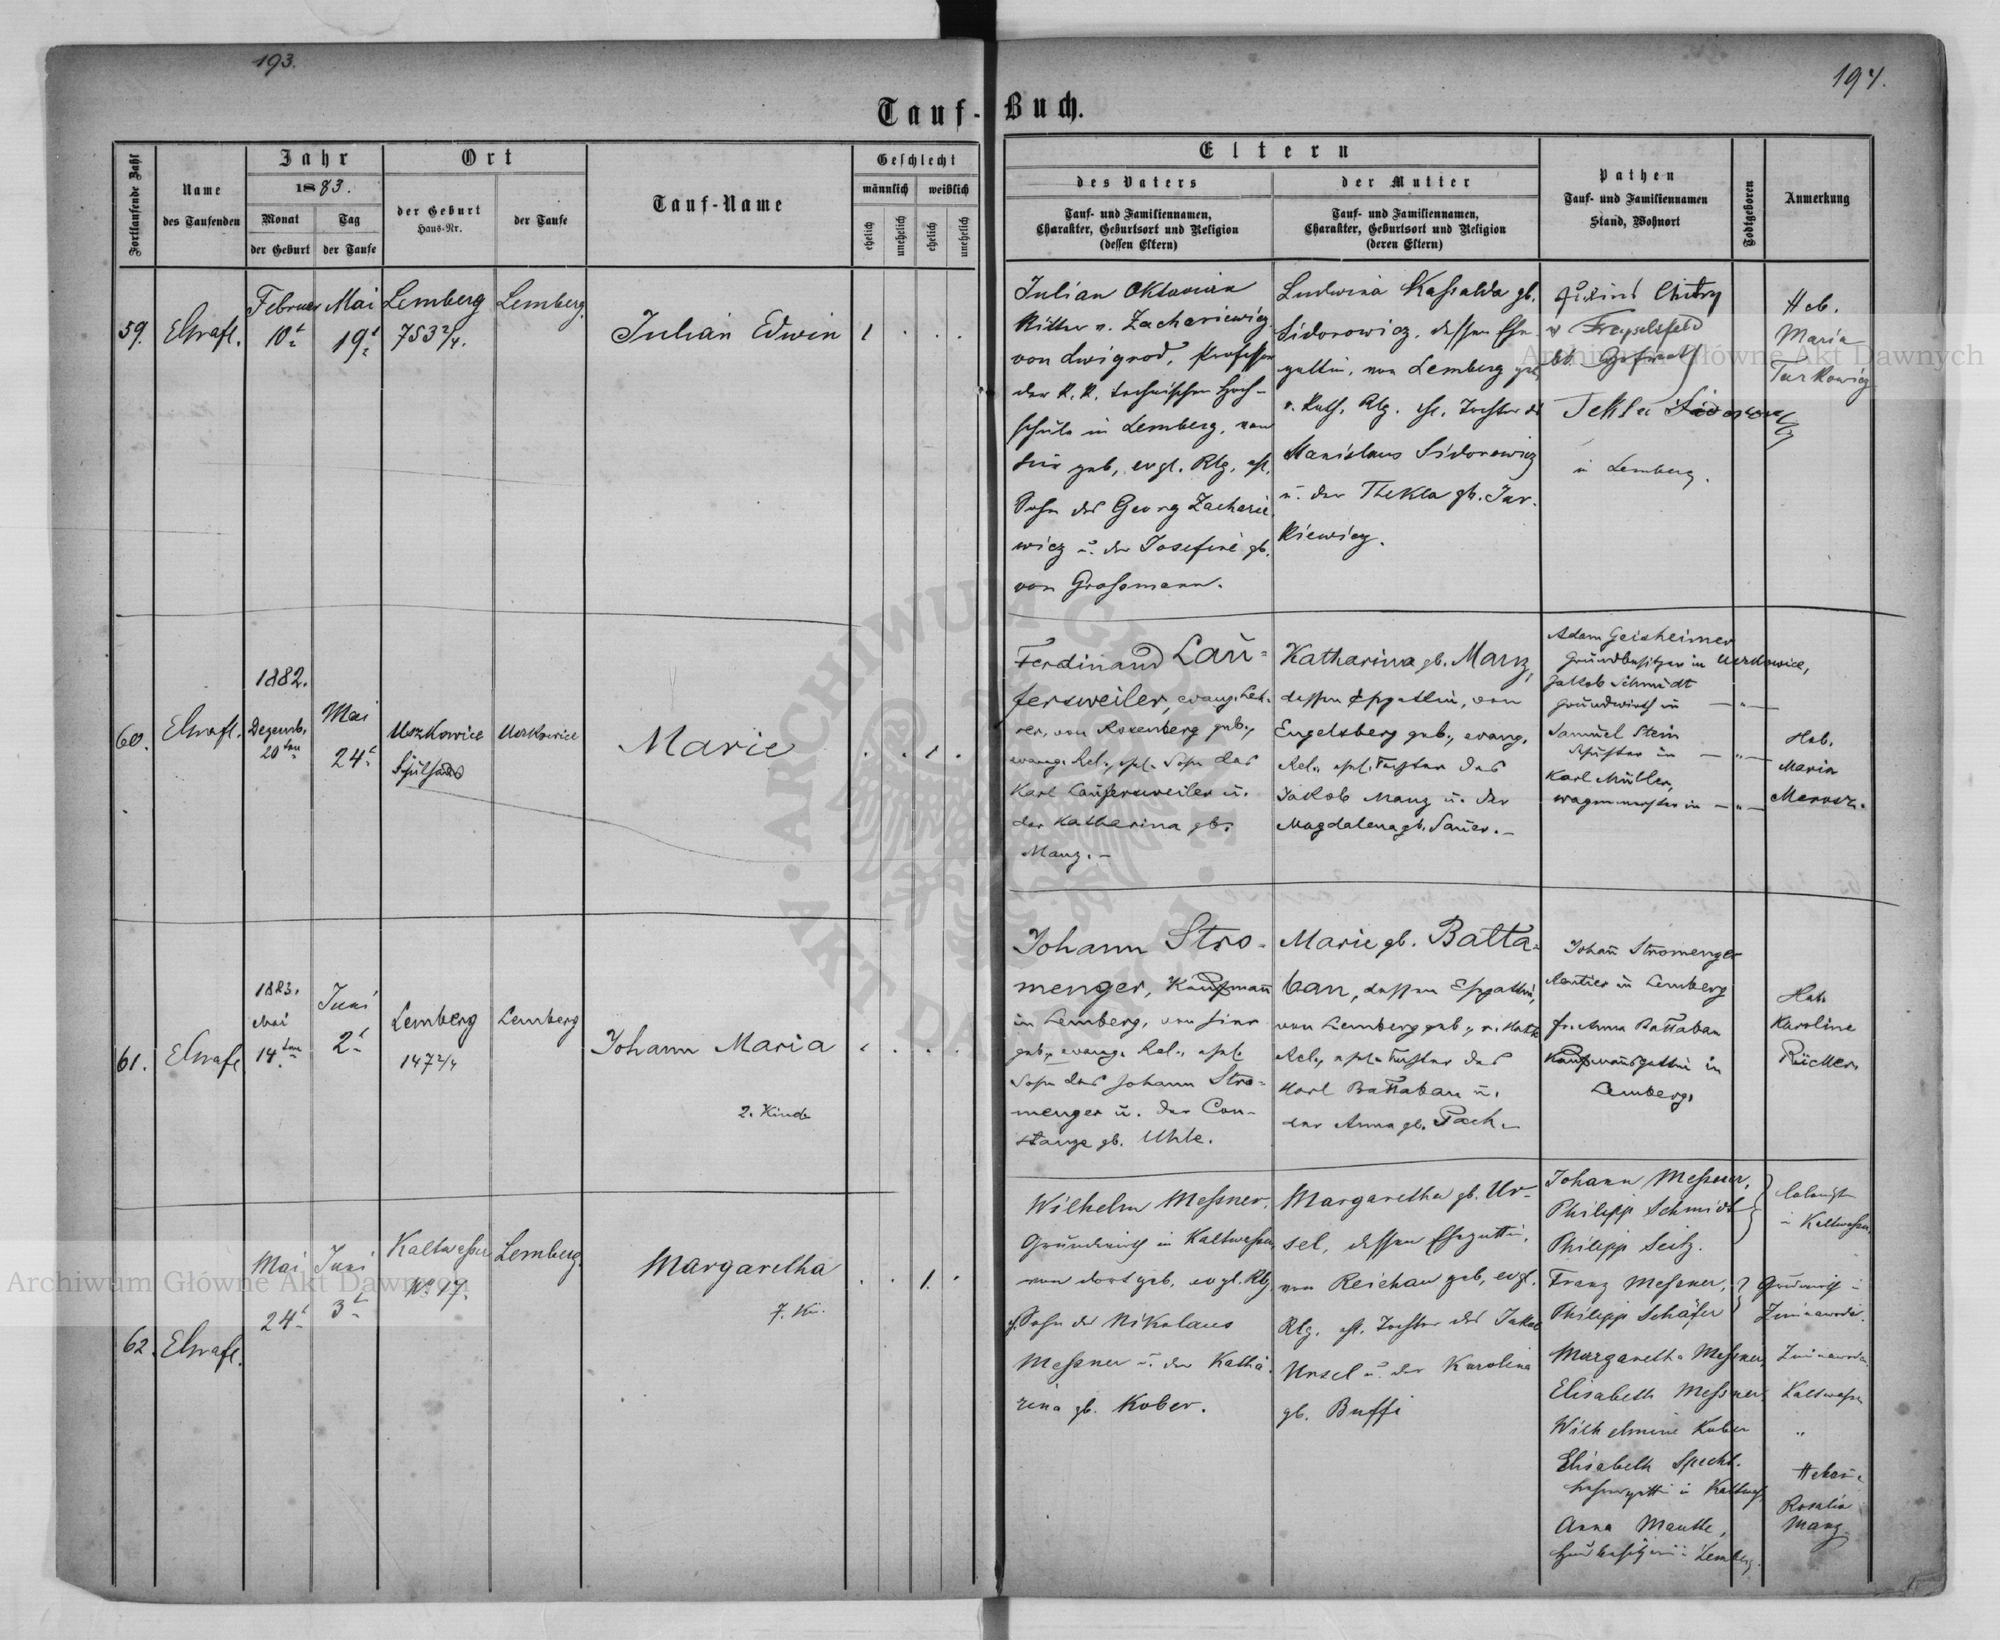 193.
194.
Tauf-Buch.
Fortlaufende Zahl
Name
des Taufenden
Jahr
1883.
Monat
der Geburt
Tag
der Taufe
Ort
der Geburt
Haus-Nr.
der Taufe
Tauf-Name
Geschlecht
männlich
weiblich
ehelich
unehelich
ehelich
unehelich
Eltern
des Vaters
Tauf- und Familiennamen,
Charakter, Geburtsort und Religion
(dessen Eltern)
der Mutter
Tauf- und Familiennamen,
Charakter, Geburtsort und Religion
(deren Eltern)
Pathen
Tauf- und Familiennamen
Stand, Wohnort
Todtgeboren
Anmerkung
59.
Februar
10t
Mai
19t
Lemberg
753 2/4.
Lemberg.
Julian Edwin
1
Julian Oktavian
Ritter v. Zachariewicz
von Lwigrod, Professor
der k. k. technischen Hoch-
schule in Lemberg, von
hier geb, evgl. Rlg, ehl.
Sohn des Georg Zacharie
wicz u. der Josefine gb.
von Grossmann.
Ludwina Kassalda gb.
Sidorowicz, dessen Ehe-
gattin, von Lemberg geb,
r. kath. Rlg. ehl. Tochter des
Stanislaus Sidorowicz
u. der Thekla gb. Jur-
kiewicz.
Tekla
in Lemberg.
Heb.
Maria
Turkowicz
60.
1882.
Dezemb.
20ten
Mai
24t
Uszkowice
Schulhaus
Uszkowice
Marie
1
Ferdinand Lau-
fersweiler, evang. Leh-
rer, von Rosenberg geb.,
evang. Rel., ehel. Sohn des
Karl Laufersweiler u.
der Katharina gb.
Manz.-
Katharina gb. Manz,
dessen Ehegattin, von
Engelsberg geb., evang.
Rel., ehel. Tochter des
Jakob Manz u. der
Magdalena gb. Sauer.-
Adam Geisheimer
Grundbesitzer in Uszkowice,
Jakob Schmidt
Grundwirth in — " —
Samuel Stein
Schuster in — " —
Karl Müller,
Wagenmeister in — " —
Heb.
Maria
61.
1883.
Mai
14ten
Juni
2t
Lemberg
147 2/4
Lemberg
Johann Maria
2. Kind
Johann Stro-
menger, Kaufmann
in Lemberg, von hier
geb., evang. Rel., ehel.
Sohn des Johann Stro-
menger u. der Con-
stanze gb. Uhle.
Marie gb. Batta-
ban, dessen Ehegattin,
von Lemberg geb., r. kath.
Rel., ehel. Tochter des
Karl Battaban u.
der Anna gb. Pach.-
Johann Stromenger
Rentier in Lemberg
fr. Anna Battaban
Kaufmannsgattin in
Lemberg.
Heb.
Karoline
Rücker.
62.
Mai
24t
Juni
3t
Kaltwasser
No 17.
Lemberg.
Margaretha
7. Ki.
1.
Wilhelm Messner,
Grundwirth in Kaltwasser,
von dort geb, evgl. Rlg.
eh. Sohn des Nikolaus
Messner u. der Katha-
rina gb. Kober.
Margaretha gb. Ur-
sel, dessen Ehegattin,
von Reichau geb, evgl.
Rlg. ehl. Tochter des Jakob
Ursel u. der Karolina
gb. Buffi
Johann Messner,
Philipp Schmidt
Philipp Seitz.
Franz Messner,
Philipp Schäfer
Margaretha Messner,
Elisabeth Messner
Wilhelmine Kober
Elisabeth Specht.
in Kaltwass.
Anna Mauthe,
Lemberg.
in Kaltwasser
Grundwirth in
Zimnawoda.
Zimnawoda
Kaltwasser
"
Rosalia
Manz.
Archiwum Główne Akt Dawnych
Archiwum Główne Akt Dawnych
ARCHIWUM GŁÓWNE AKT DAWNYCH